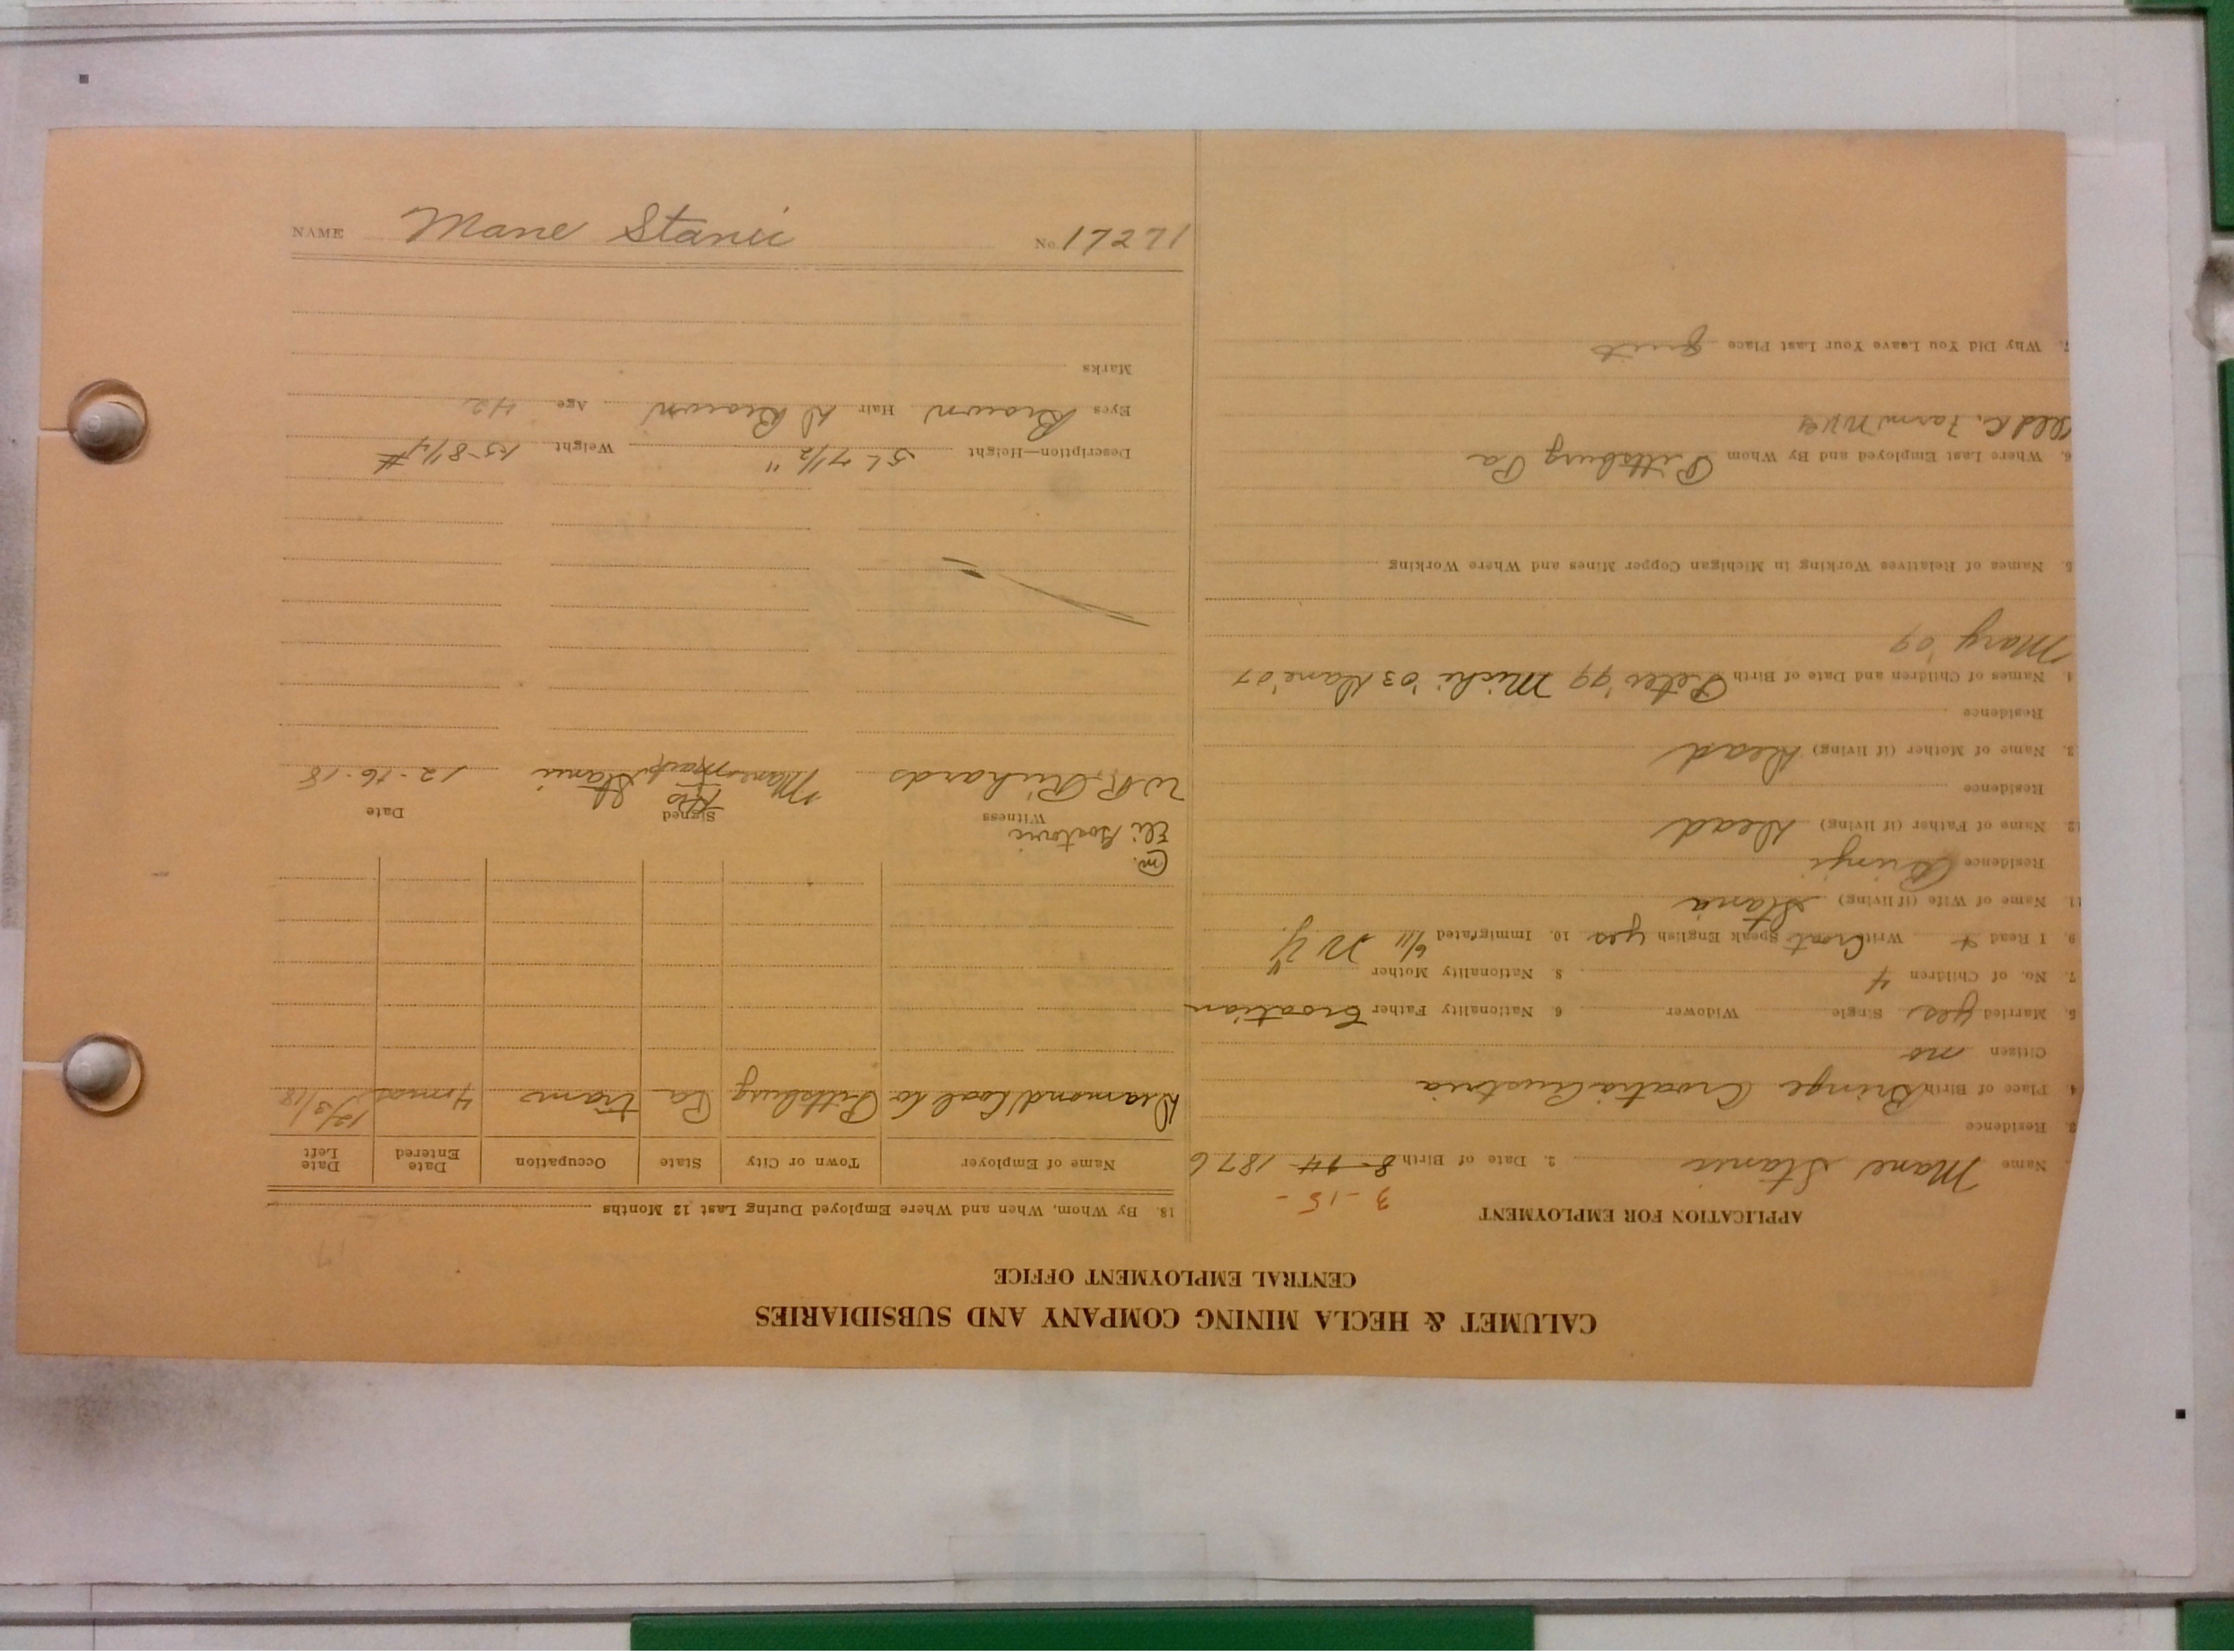 CALUMET & HECLA MINING COMPANY AND SUBSIDIARIES
CENTRAL EMPLOYMENT OFFICE
APPLICATION FOR EMPLOYMENT
3-15-
Name Mane Stanic 2. Date of Birth 8-14- 1876
3. Residence
4. Place of Birth Bringe Croatia Austria
Citizen no
5. Married yes Single Widower 6 Nationality Father Croatian
7. No. of Children 4 8 Nationality Mother "
9. I Read + Write Croat Speak English yes 10. Immigrated 6/11 N.Y.
11. Name of Wife (if living) Stana
Residence Bringi
12. Name of Father (if living) Dead
Residence
3. Name of Mother (if living) Dead
Residence
4. Names of Children and Date of Birth Peter '99 Michi '03 Dane '07
Mary '09
5. Names of Relatives Working in Michigan Copper Mines and Where Working
6. Where Last Employed and By Whom Pittsburg Pa
7. Why Did You Leave Your Last Place quit
18. By Whom, When and Where Employed During Last 12 Months
Name of Employer Town or City State Occupation Date Entered Date Left
Diamond Coal Co Pittsburg Pa tram 4 mos 12/3/18
(m.
Eli
Witness Signed Date
W.R. Richards Mane His mark Stanic 12-16-18
Description—Height 5' 7 1/2" Weight
Eyes Brown Hair D Brown Age 42
Marks
NAME Mane Stanic No. 17271